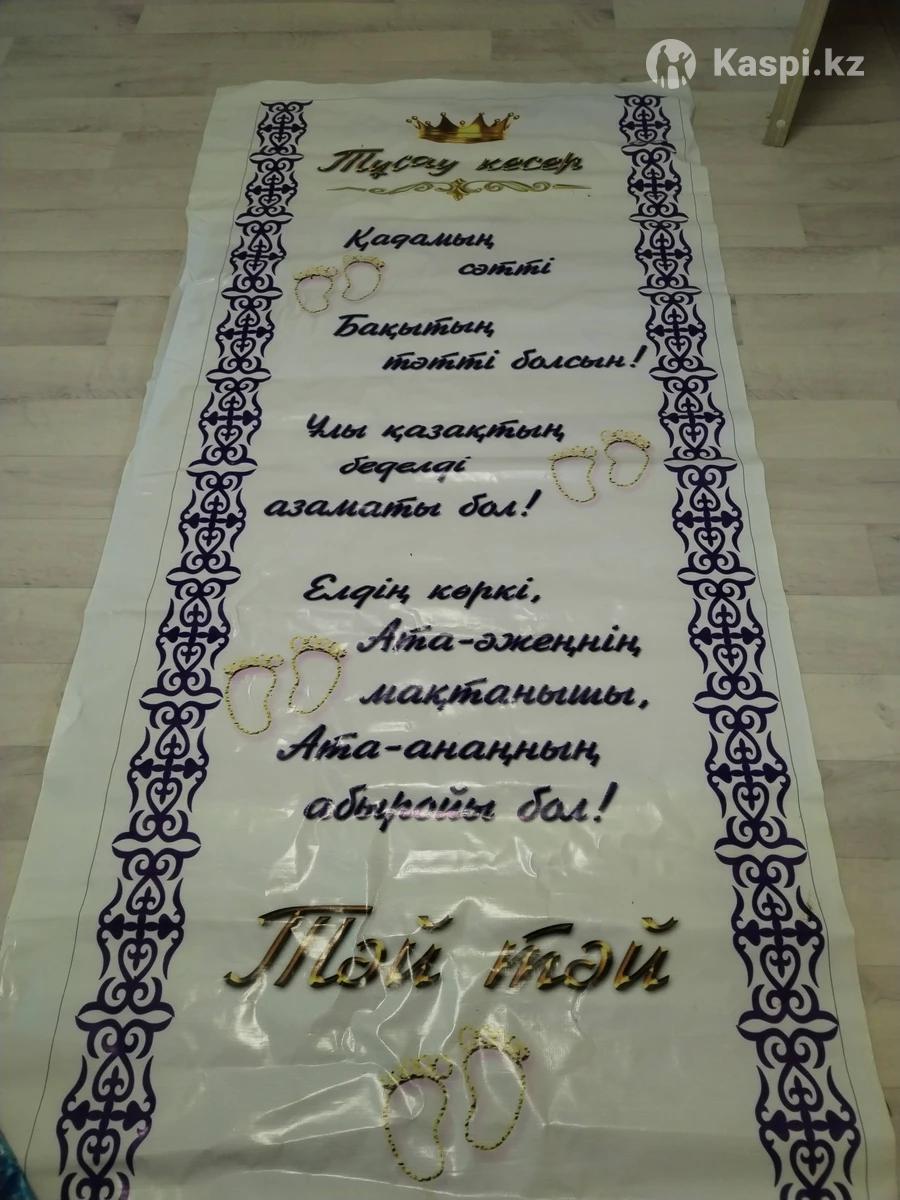 Kaspi.kz
Тұсау кесер
Қадамың
сәтті
Бақытың
тәтті болсын!
Ұлы қазақтың
беделді
азаматы бол!
Елдің көркі,
Ата-әжеңнің
мақтанышы,
Ата-анаңның
абыройы бол!
Тәй тәй